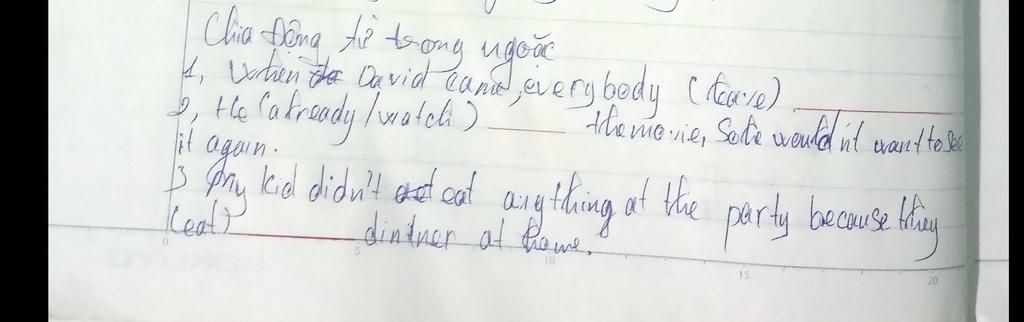 Chia động từ trong ngoặc
1, When David came, everybody (leave)
2, He (already/watch) the movie, So he wouldn't want to see
it again.
3 My kid didn't eat anything at the party because they
(eat) dintner at home.
0 5 10 15 20